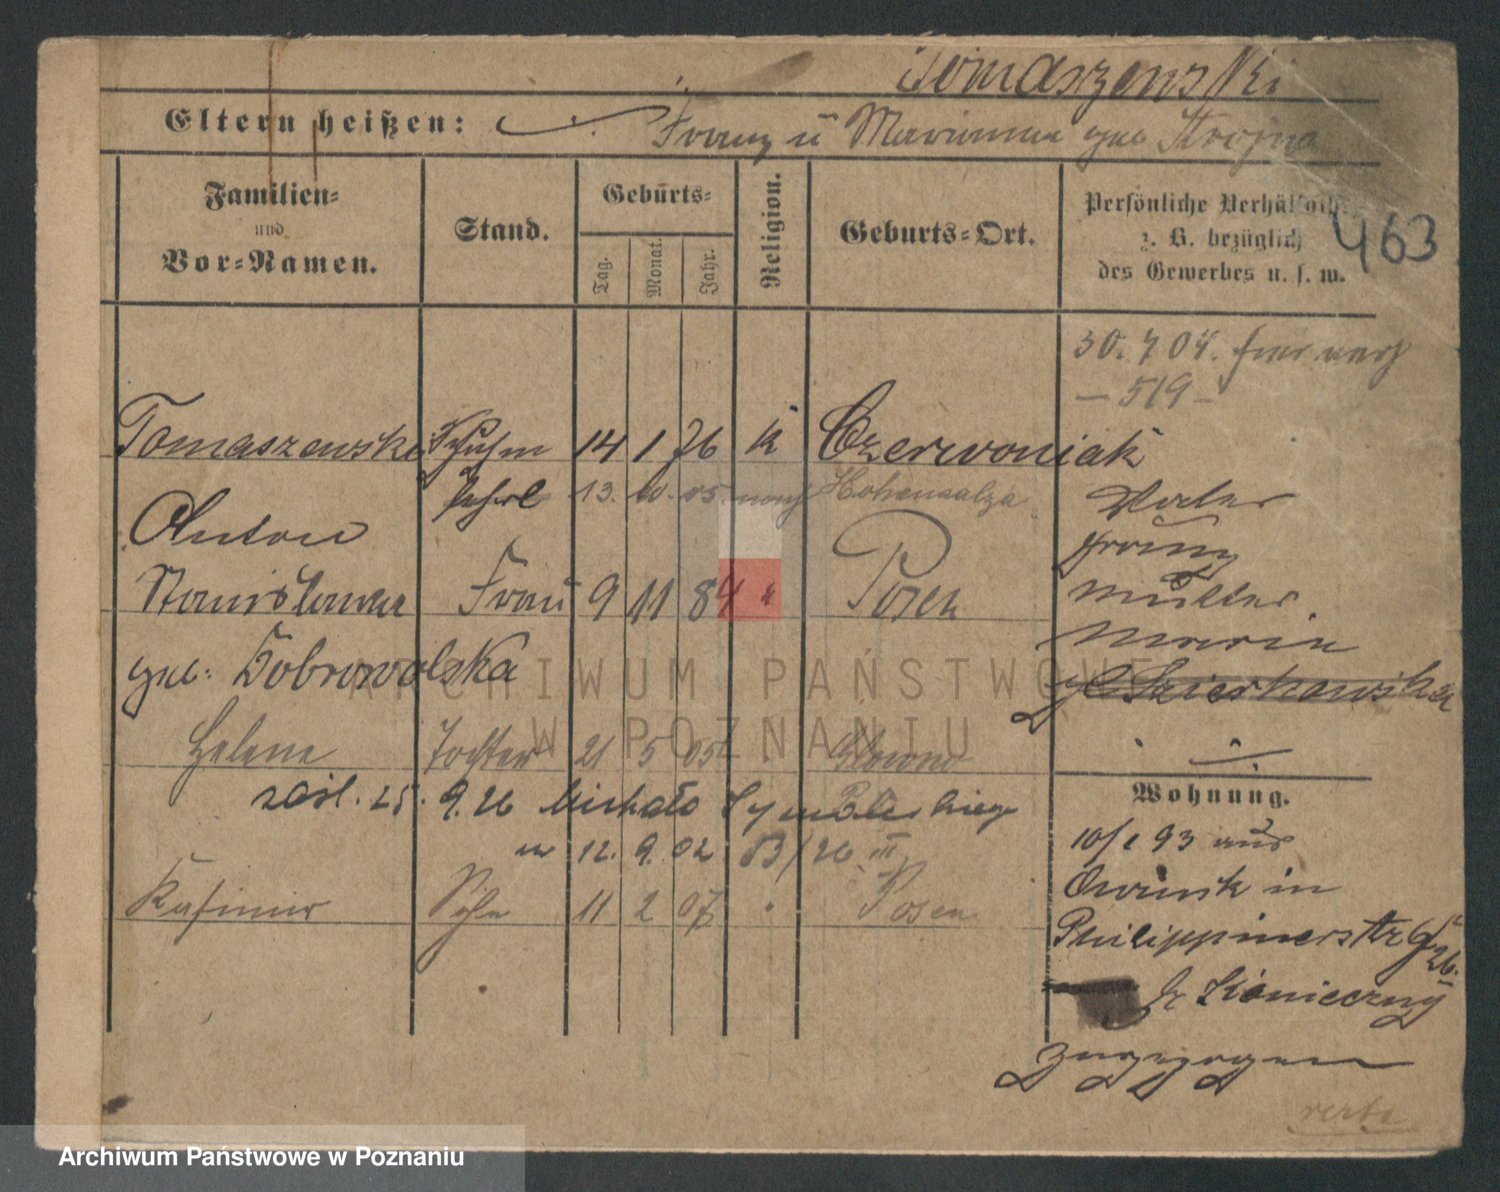 Tomaszewski
Eltern heißen: Franz u Marianna geb Strojna
Familien-
und
Vor-Namen.
Stand.
Geburts-
Tag.
Monat.
Jahr.
Religion.
Geburts-Ort.
Persönliche Verhältnisse
z. B. bezüglich
des Gewerbes u. s. w.
463
30. 7 04.
– 519 –
Tomaszewski 14 1 76 k Czerwoniak
13. 10. 05. nach Hohensalza
Anton
Stanisława Frau 9 11 84 " Posen
geb. Dobrowolska
Helene Tochter 21 5 05 Glowno
zaśl. 25. 9. 26 Michała
12. 9. 02 B/26 III
Kasimir Sohn 11 2 07 " Posen
Vater
Franz
Mutter
Maria
Wohnung.
10/1 93 aus
Owinsk in
Philippinerstr
b Konieczny
zugezogen
verte
ARCHIWUM PAŃSTWOWE
W POZNANIU
Archiwum Państwowe w Poznaniu